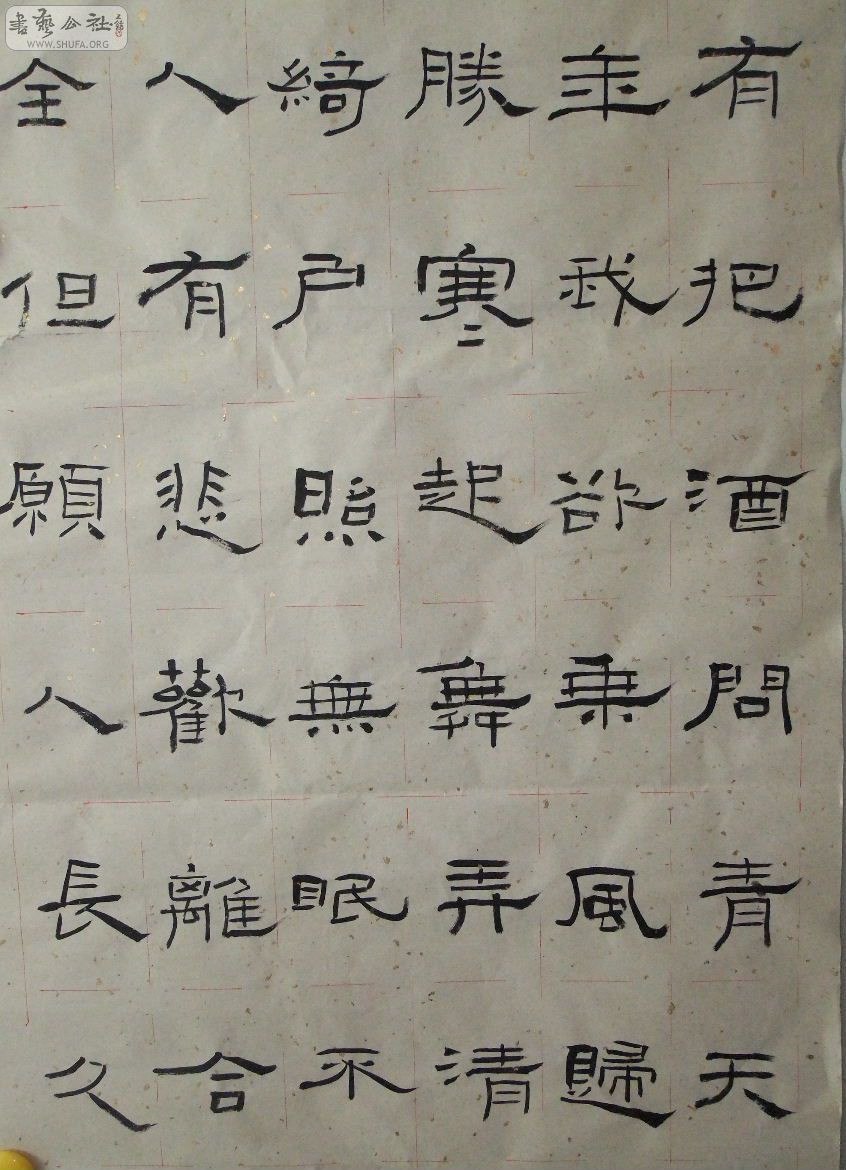 書藝公社
WWW.SHUFA.ORG
有把酒問青天
年我欲乘風歸
勝寒起舞弄清
綺戶照無眠不
人有悲歡離合
全但願人長久